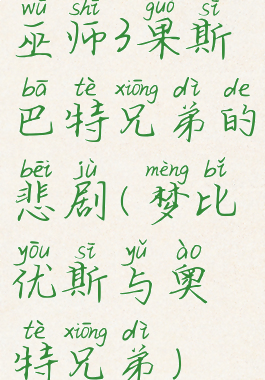 wū shī guǒ sī
巫师3果斯
bā tè xiōng dì de
巴特兄弟的
bēi jù mèng bǐ
悲剧(梦比
yōu sī yǔ ào
优斯与奥
tè xiōng dì
特兄弟)